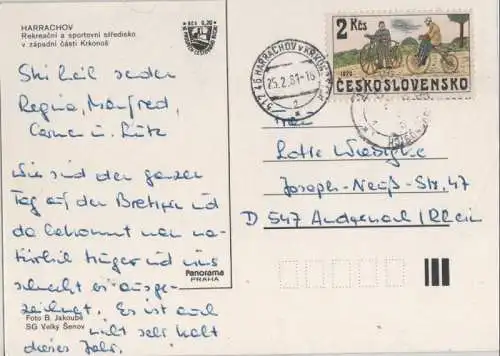 HARRACHOV
Rekreační a sportovní středisko
v západní části Krkonoš
Ski heil senden
Regina, Manfred,
Carmen u. Lutz
Wir sind den ganzen
Tag auf den Brettern und
da bekommt man na-
türlich Hunger und uns
schmeckt es ausge-
zeichnet. Es ist auch
nicht sehr kalt
dieses Jahr.
Panorama
PRAHA
Foto B. Jakoubě
SG Velký Šenov
KČS 0,20
512 46 HARRACHOV V KRKONOŠÍCH
25.2.81-16
2 Kčs
1870
ČESKOSLOVENSKO
Lotte
Joseph-Neuß-Str. 47
D 547 Andernach/Rhein